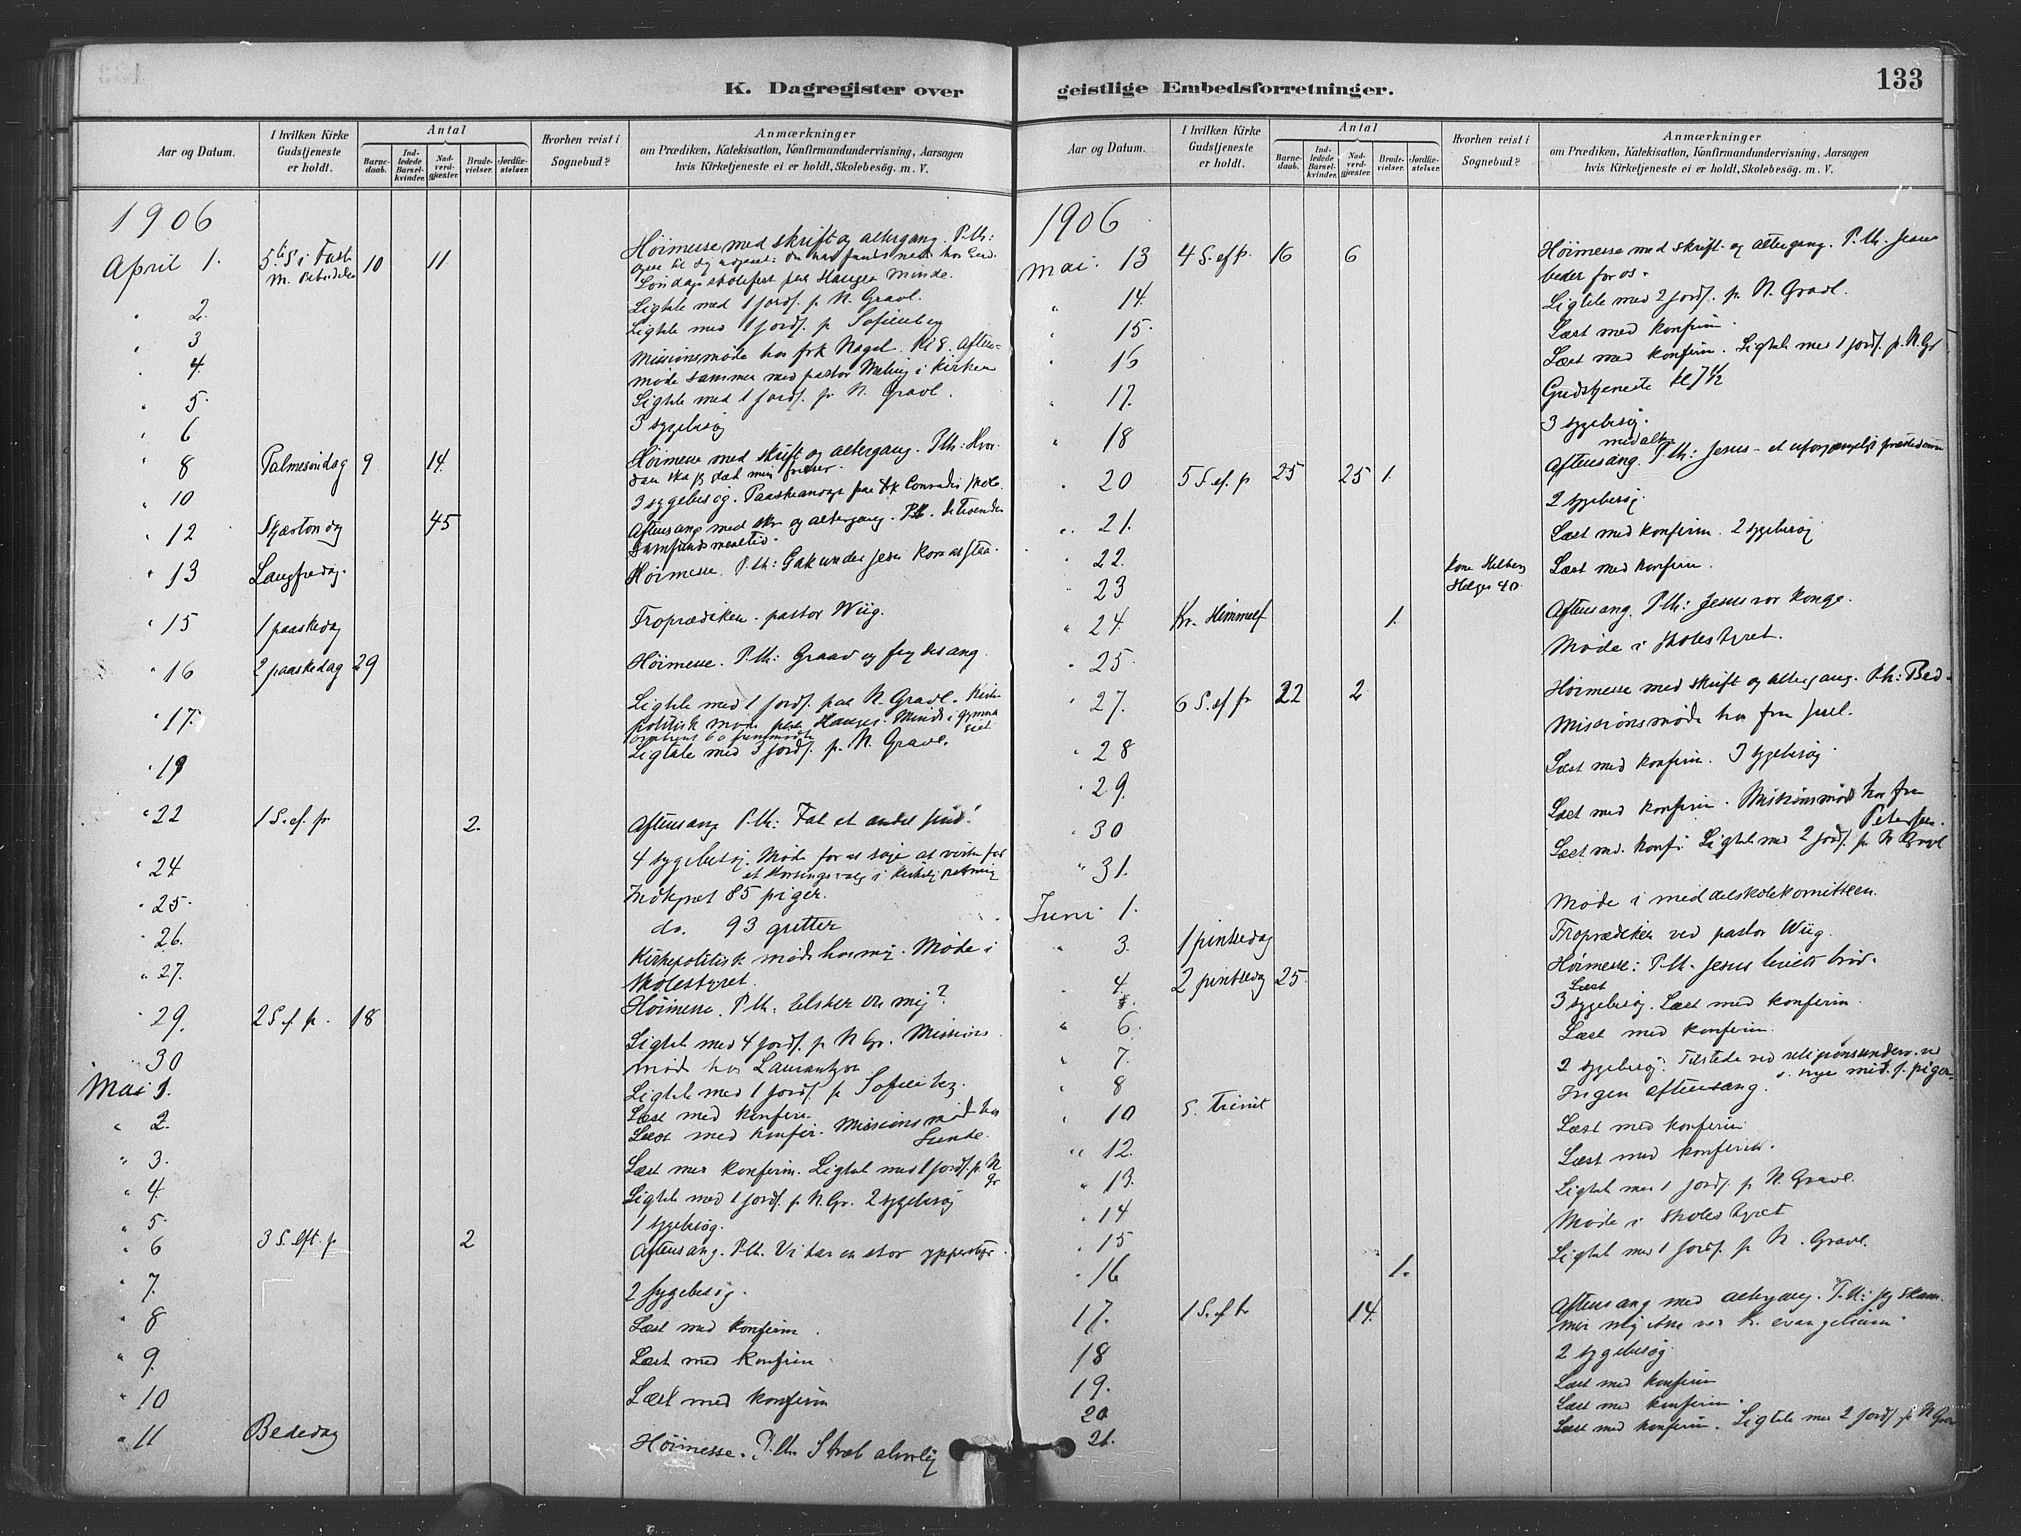 K. Dagregister over
Aar og Datum.
I hvilken Kirke Gudstjeneste er holdt.
Antal
Barnedaab.
Indledede Barselkvinder.
Nadverdgjæster.
Brudevielser.
Jordfæstelser.
Hvorhen reist i Sognebud?
Anmærkninger
om Prædiken, Katekisation, Konfirmandundervisning, Aarsagen
hvis Kirketjeneste ei er holdt, Skolebesøg. m. V.
1906
April 1. 5. S i Fast 10 11 Høimesse med skrift og altergang. P.th:
Søndagsskolefest paa Hauges Minde.
" 2. Ligtale med 1 jordf. p. N. Gravl.
" 3 Ligtale med 1 jordf. p Sofienberg
" 4 Missionsmøde hos frk Nagel. Kl 8. Aften-
møde sammen med pastor i kirken
" 5. Ligtale med 1 jordf. p. N. Gravl.
" 6 3 sygebesøg
" 8 Palmesøndag 9 14. Høimesse med skrift og altergang. P.th: Hvor-
dan ska jeg faa min frelser.
" 10 3 sygebesøg.
" 12 Skjærtorsdag 45 Aftensang med skr og altergang. P.th.
" 13 Langfredag. Høimesse. P.th: Gak under Jesu kors at staa.
" 15 1 paaskedag Froprædiken. pastor Wiig.
" 16 2 paaskedag 29 Høimesse. P.th: Graad og frydesang.
" 17. Ligtale med 1 jordf. paa N. Gravl. Kirke-
politisk møde paa Hauges Minde i
" 19 Ligtale med 3 jordf. p. N. Gravl.
" 22 1 S. ef. p 2. Aftensang P.th: Fat et andet sind!
" 24 4 sygebesøg. Møde for at søge at virke for
et i kirkelig retning
" 25. Indskrevet 85 piger.
" 26. do. 93 gutter
" 27. Kirkepolitisk møde hos mig. Møde i
skolestyret.
" 29. 2 S. f p. 18 Høimesse. P.th: Elsker du mig?
" 30 Ligtale med 4 jordf. p N Gr. Missions
møde hos Laurantzon
Mai 1. Ligtale med 1 jordf. p Sofienberg.
" 2. Læst med konfirm.
Læst med konfir. Missionsmøde hos
Sunde.
" 3. Læst med konfirm. Ligtale med 1 jordf. p. N
Gr
" 4. Ligtale med 1 jordf. p. N. Gr. 2 sygebesøg
" 5. 1 sygebesøg.
" 6 3 S. eft. p 2 Aftensang. P.th. Vi har en stor ypperstepr.
" 7. 2 sygebesøg.
" 8 Læst med konfirm.
" 9. Læst med konfirm
" 10 Læst med konfirm
" 11 Bededag Høimesse. P.th. Stræb alvorlig
geistlige Embedsforretninger.
133
Aar og Datum.
I hvilken Kirke Gudstjeneste er holdt.
Antal
Barnedaab.
Indledede Barselkvinder.
Nadverdgjæster.
Brudevielser.
Jordfæstelser.
Hvorhen reist i Sognebud?
Anmærkninger
om Prædiken, Katekisation, Konfirmandundervisning, Aarsagen
hvis Kirketjeneste ei er holdt, Skolebesøg. m. V.
1906
Mai. 13 4 S. ef p. 16 6 Høimesse med skrift og altergang. P.th. Jesus
beder for os.
" 14. Ligtale med 2 jordf. p. N. Gravl.
" 15. Læst med konfirm.
" 16 Læst med konfirm. Ligtale med 1 jordf. p. N. Gr
" 17. Gudstjeneste kl 7 1/2
" 18 3 sygebesøg.
" 20 5 S ef. p 25 25 1. Aftensang. med alter P.th: Jesus – et uforgjengeligt præstedømme
2 sygebesøg.
" 21. Læst med konfirm. 2 sygebesøg
" 22. Læst med konfirm.
" 23
" 24. Kr. Himmelf 1. Aftensang. P.th: Jesus vor konge.
" 25. Møde i skolestyret.
" 27. 6 S. ef p 22 2. Høimesse med skrift og altergang. P.th: Bed.
Missionsmøde hos fru Juel.
" 28 Læst med konfirm. 3 sygebesøg
" 29. Læst med konfirm. Missionsmøde hos fru
Petersen.
" 30 Læst med. konf. Ligtale med 2 jordf. p. N Gravl
" 31.
Juni 1. Møde i middelskolekomitteen.
" 3. 1 pintsedag Froprædiken ved pastor Wiig.
" 4. 2 pintsedag 25. Høimesse: P.th. Jesus livets brød.
3 sygebesøg. Læst med konfirm
" 6. Læst med konfirm.
" 7. 2 sygebesøg. Tilstede ved religionsunderv. ved
" 8 Ingen aftensang.
" 10 S. Trinit Læst med konfirm
" 12. Læst med konfirm.
" 13. Ligtale med 1 jordf. p N. Gravl.
" 14 Møde i skolestyret
" 15 Ligtale med 1 jordf. p N. Gravl.
" 16 1.
17. 1 S. ef tr 14. Aftensang med altergang. P.th: jeg skam-
mer mig ikke ved Kr. evangelium.
18 2 sygebesøg.
19. Læst med konfirm
20 Læst med konfirm.
21. Læst med konfirm. Ligtale med 2 jordf. p N Grav